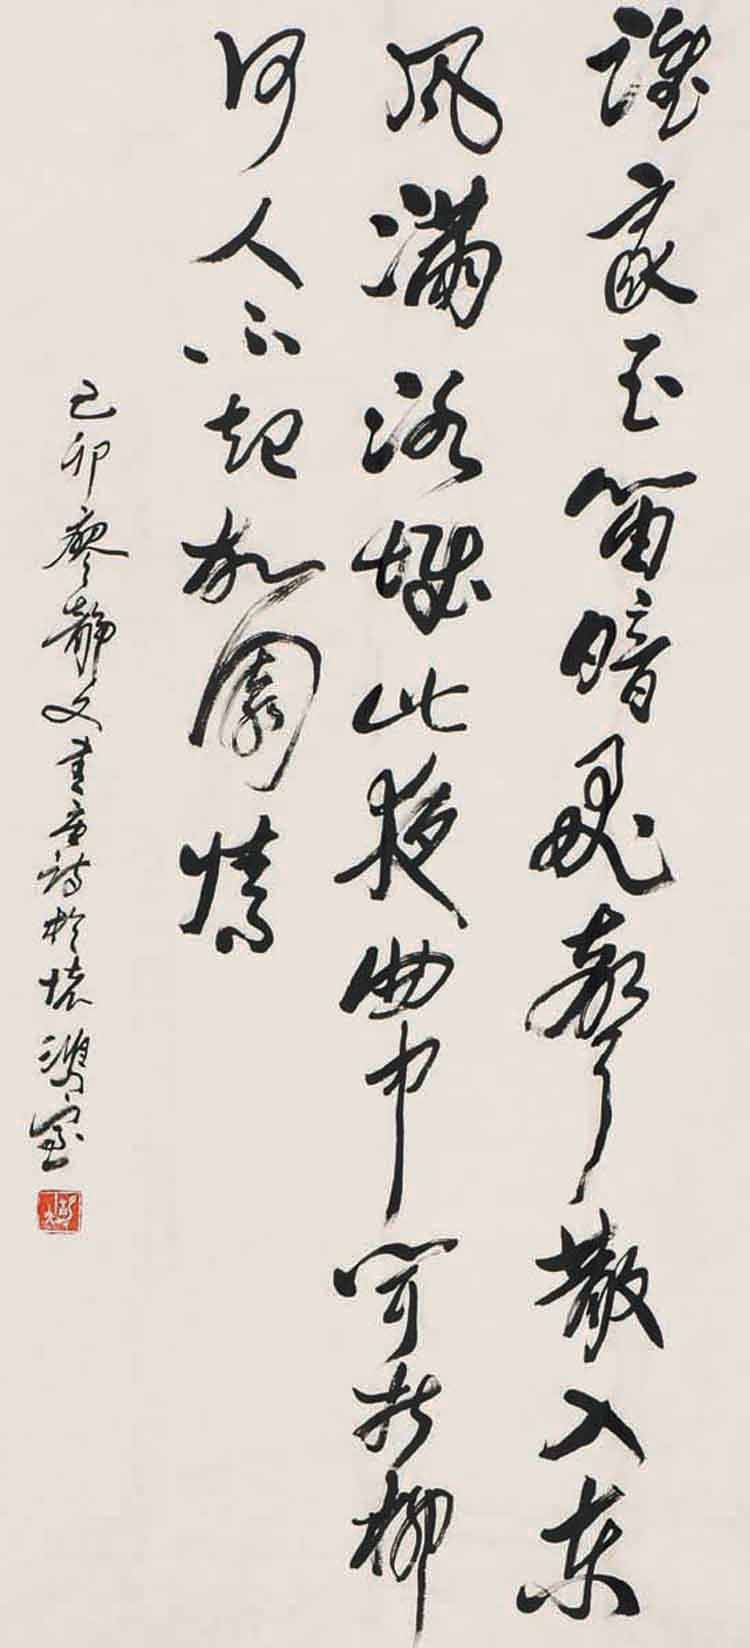 誰家玉笛暗飛聲散入東
風滿洛城此夜曲中聞折柳
何人不起故園情
己卯廖靜文書唐詩於懷鴻室